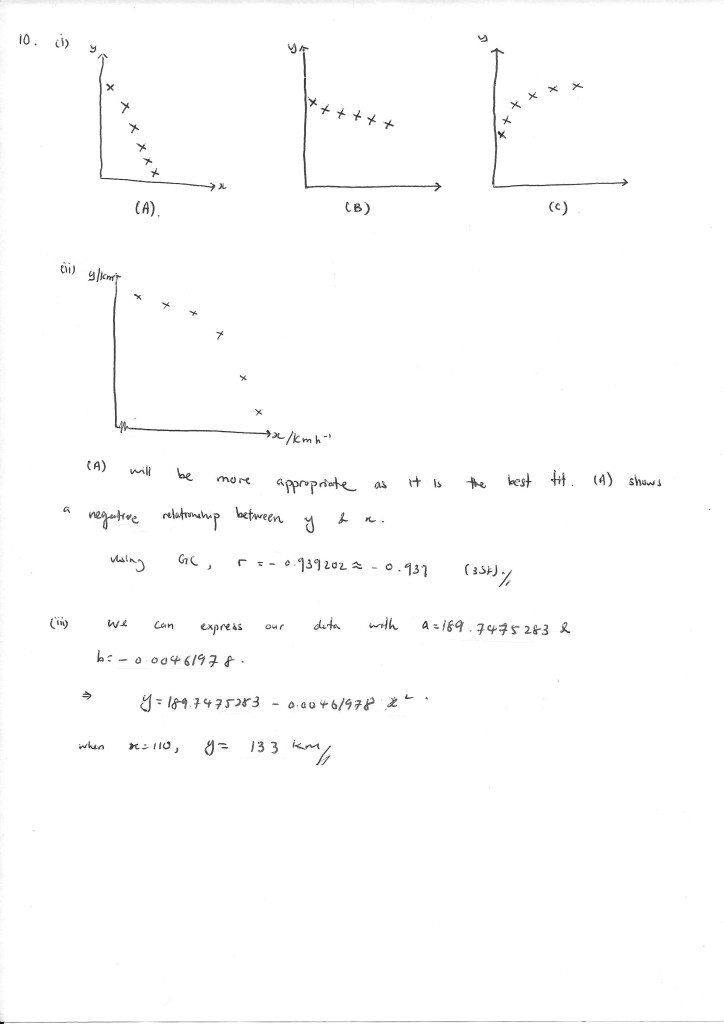 10. (i) y y y
x
(A). (B) (C)
(ii) y/km
x/kmh⁻¹
(A) will be more appropriate as it is the best fit. (A) shows
a negative relationship between y & x.
Using GC, r = - 0.939202 ≈ - 0.939 (3sf).//
(iii) We can express our data with a = 189.7475283 &
b = - 0.00461978.
⇒ y = 189.7475283 - 0.00461978 x².
when x = 110, y = 133 km//